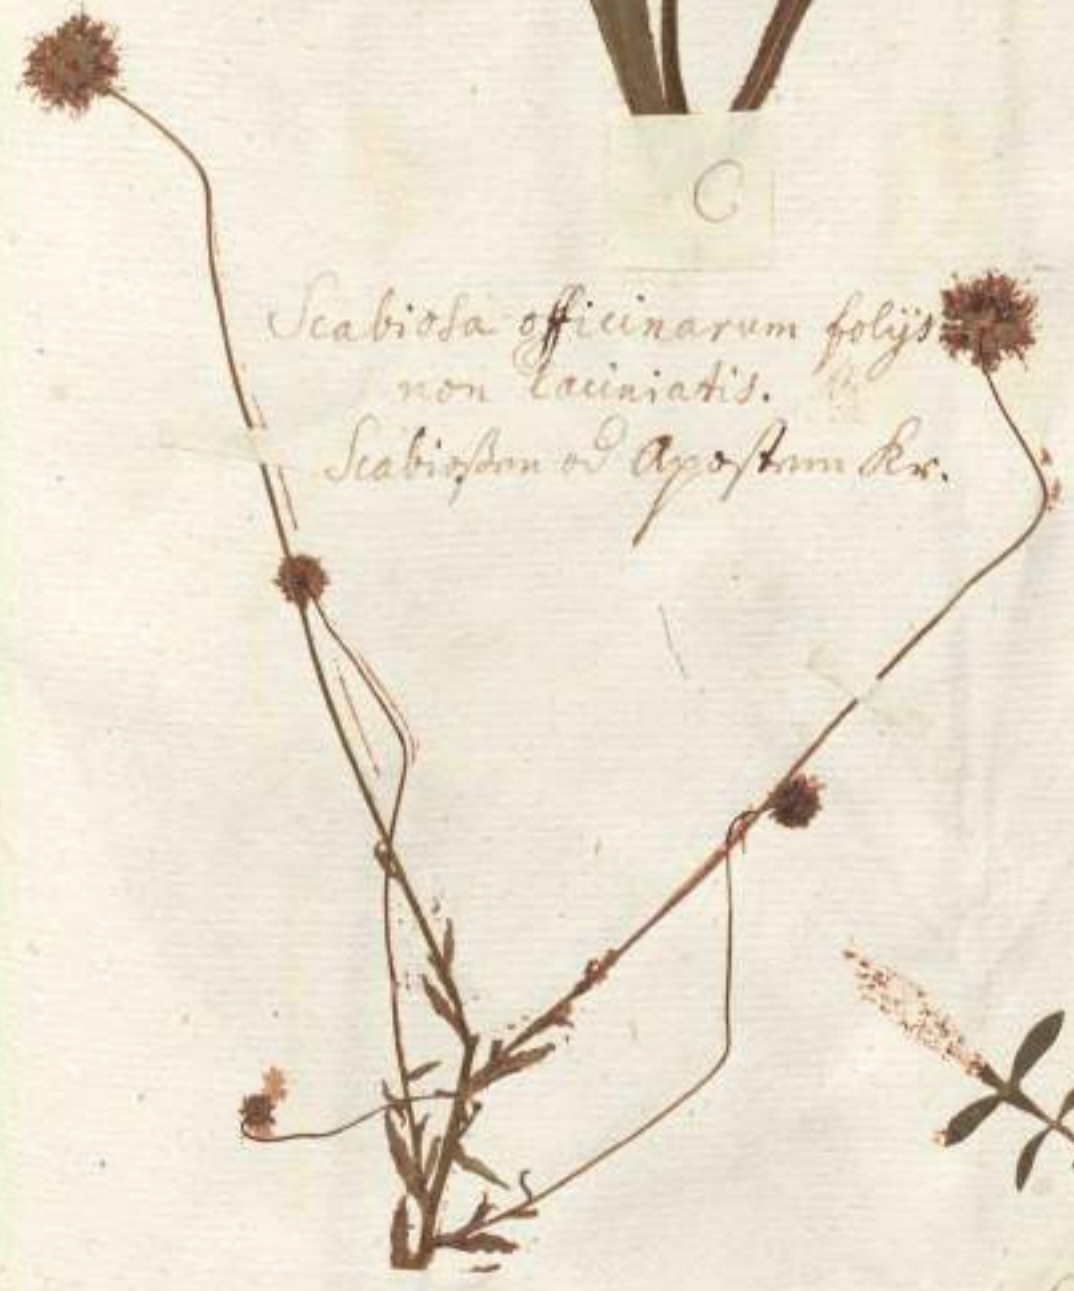 C
Scabiosa officinarum folijs
non laciniatis.
Scabiosen od Apostem Kr.